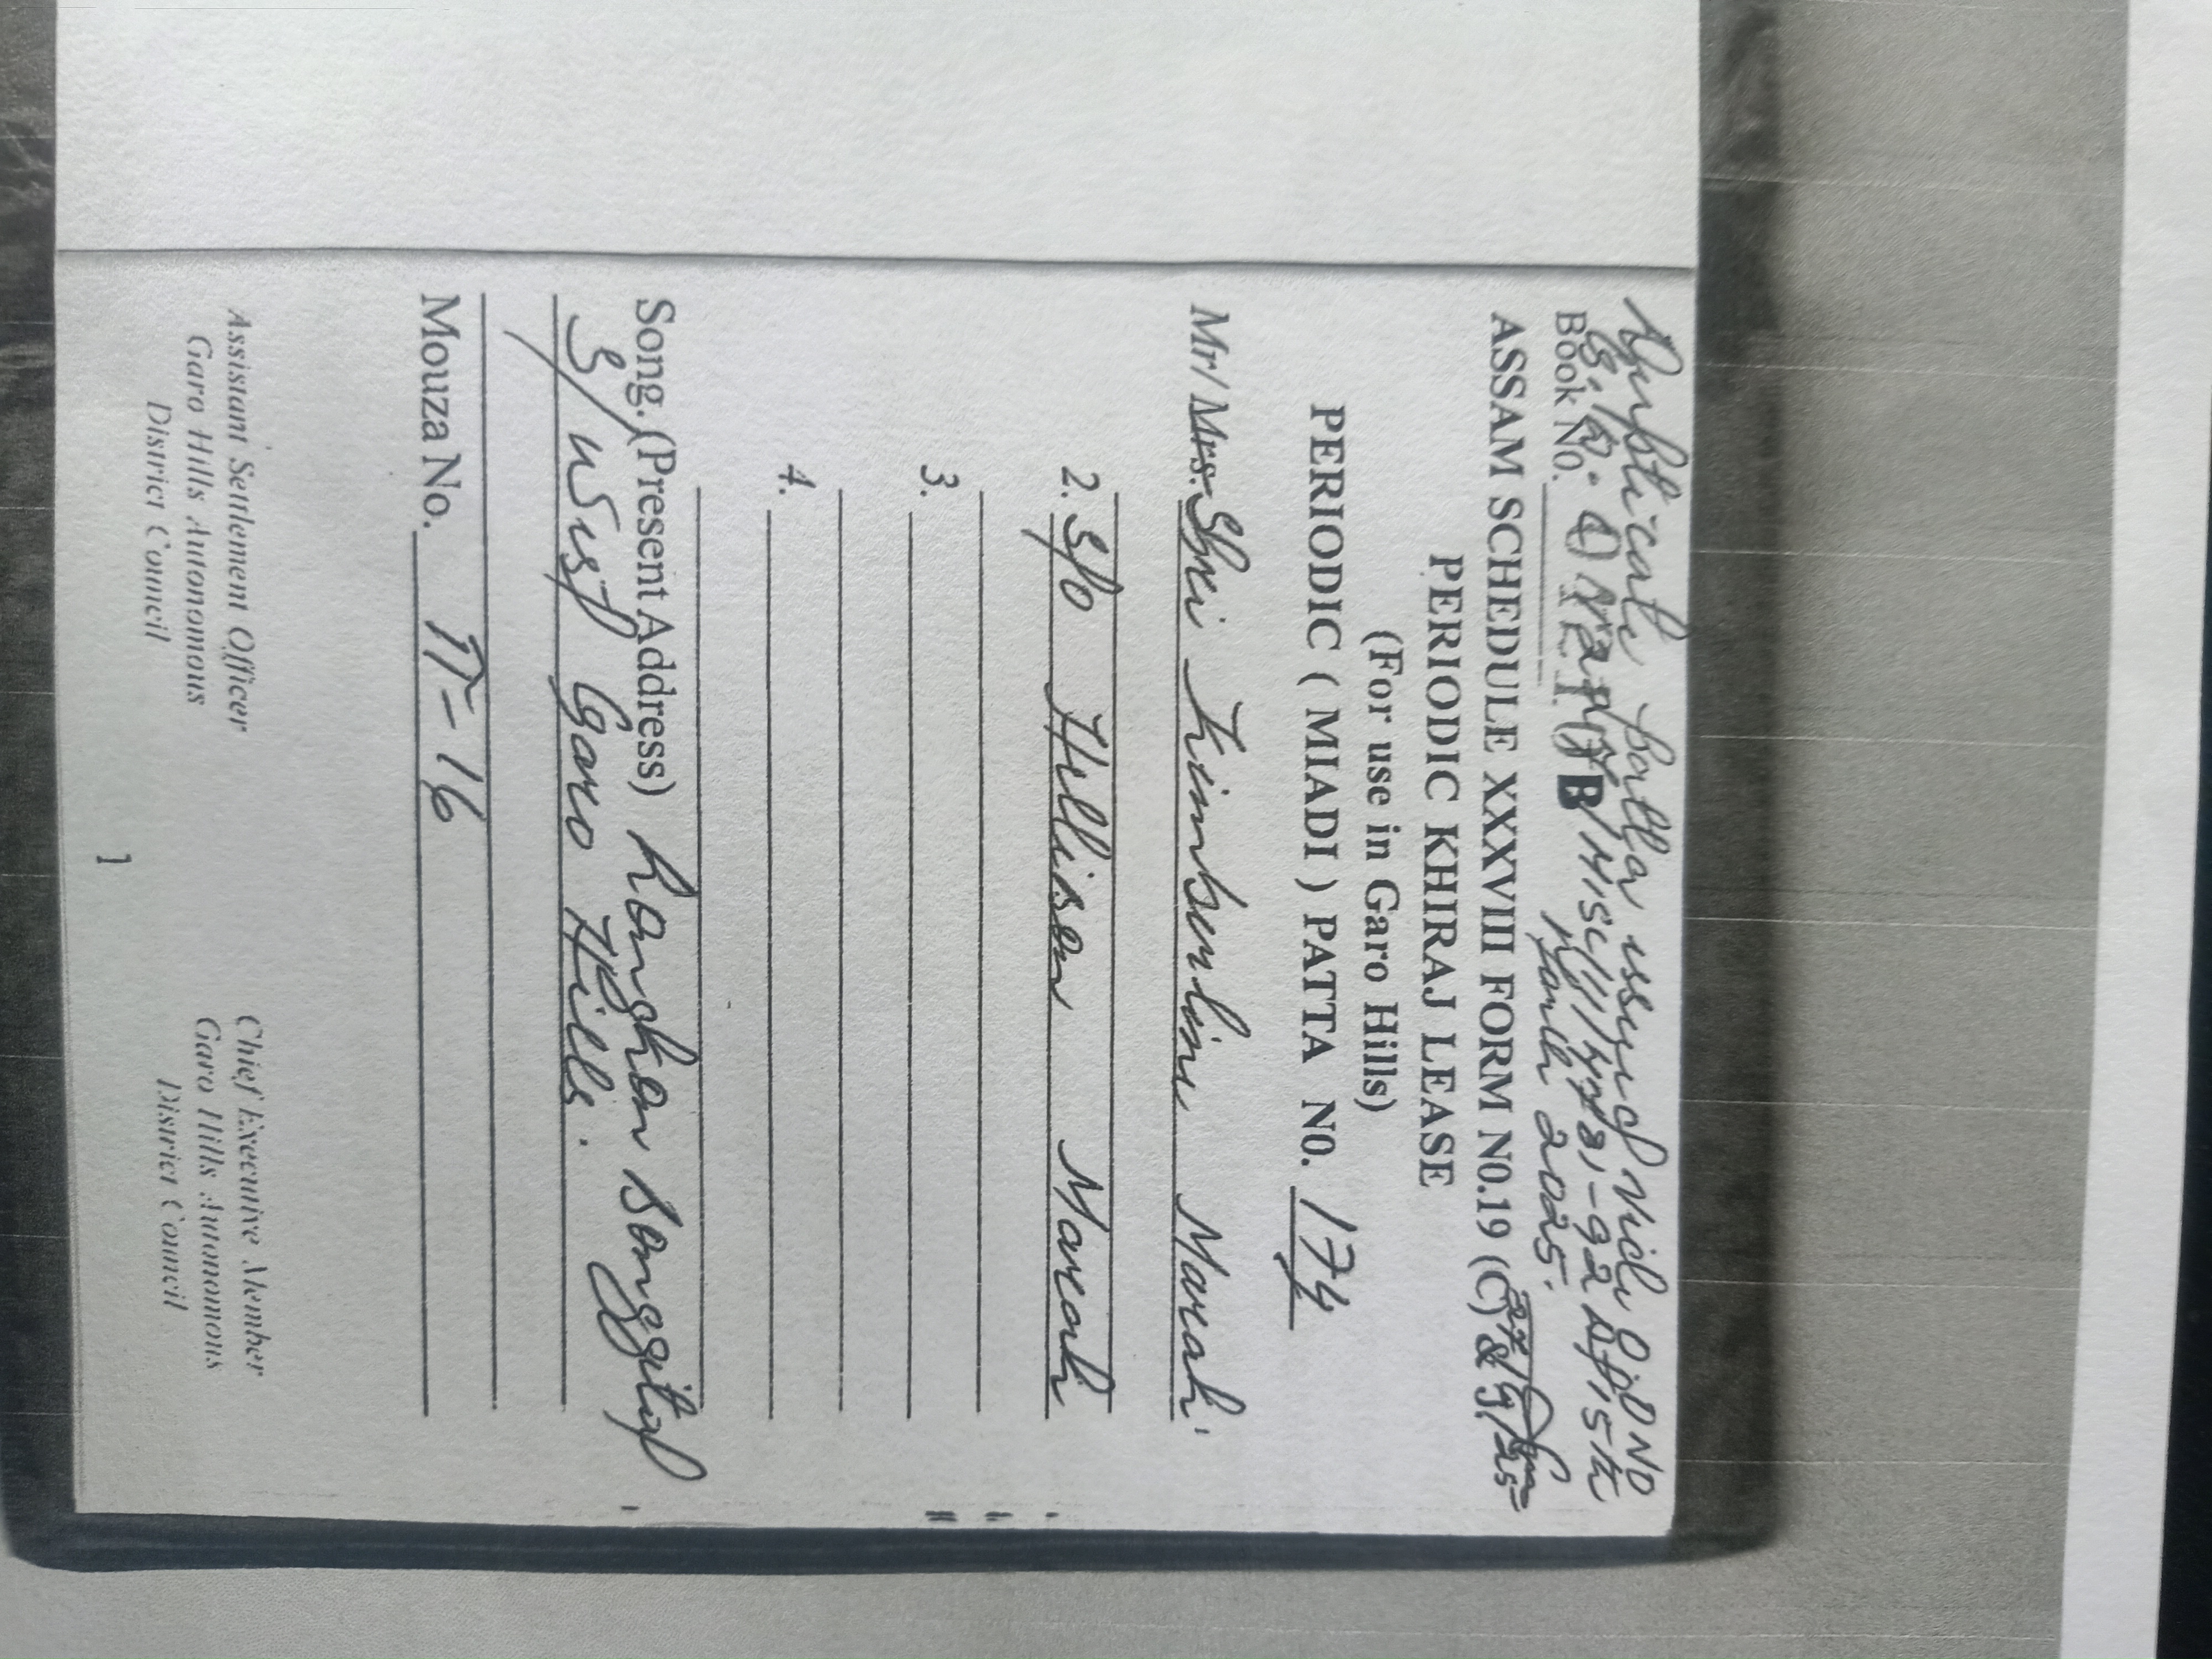 Duplicate patta issued vide O.O NO
Book No.
March 2025.
ASSAM SCHEDULE XXXVIII FORM N0.19 (C) &
PERIODIC KHIRAJ LEASE
(For use in Garo Hills)
PERIODIC ( MIADI ) PATTA N0. 174
Mr/ Mrs. Shri Kimberline Marak.
2. S/o Hellison Marak
3.
4.
Song. (Present Address) Rongkon Songgital
West Garo Hills.
Mouza No. II-16
Assistant Settlement Officer
Garo Hills Autonomous
District Council
Chief Executive Member
Garo Hills Autonomous
District Council
1